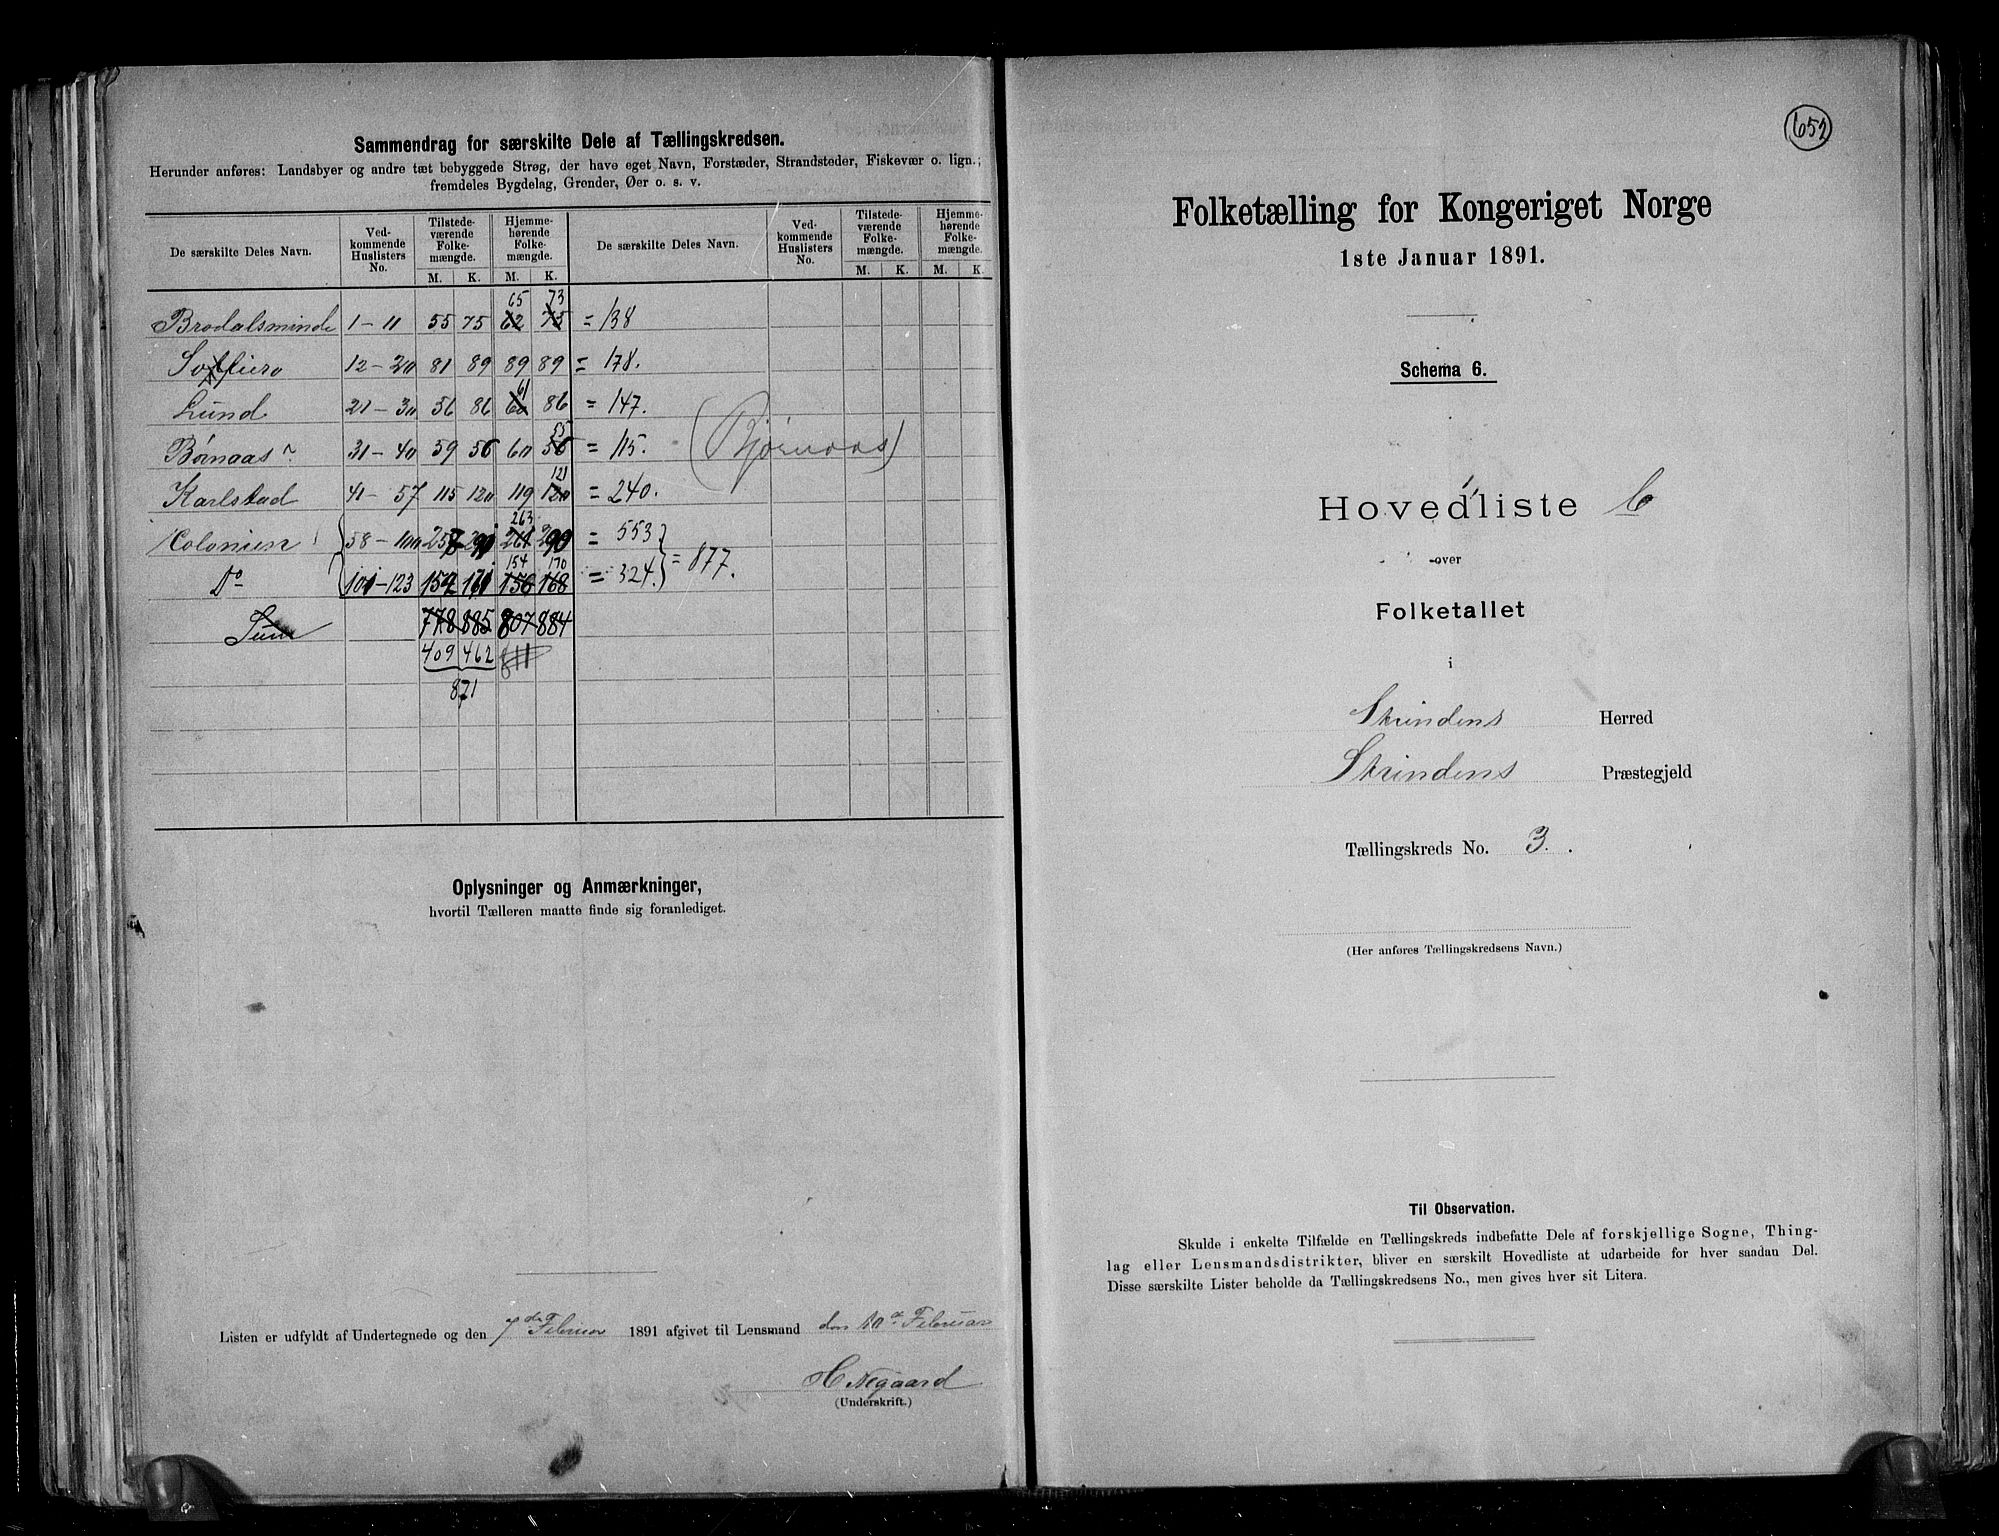 Sammendrag for særskilte Dele af Tællingskredsen.
Herunder anføres: Landsbyer og andre tæt bebyggede Strøg, der have eget Navn, Forstæder, Strandsteder, Fiskevær o. lign.;
fremdeles Bygdelag, Grender, Øer o. s. v.
De særskilte Deles Navn. Ved-kommende Huslisters No. Tilstede-værende Folke-mængde. Hjemme-hørende Folke-mængde. De særskilte Deles Navn. Ved-kommende Huslisters No. Tilstede-værende Folke-mængde. Hjemme-hørende Folke-mængde.
M. K. M. K. M. K. M. K.
65 73
Brodalsminde 1-11 55 75 62 75 = 138
12-20 81 89 89 89 = 178.
61
Lund 21-30 56 86 60 86 = 147.
55
Børnaas 31-40 59 56 60 56 = 115. (Bjørnaas)
121
Karlstad 41-57 115 120 119 120 = 240.
263
Colonien 58-100 261 290 = 553
154 170
Do 101-123 156 168 = 324. = 877.
Sum 778 885 807 884
409 462 811
871
Oplysninger og Anmærkninger,
hvortil Tælleren maatte finde sig foranlediget.
Listen er udfyldt af Undertegnede og den 7de Februar 1891 afgivet til Lensmand den 10de Februar
(Underskrift.)
652
Folketælling for Kongeriget Norge
1ste Januar 1891.
Schema 6.
Hovedliste
over
Folketallet
i
Strindens Herred
Strindens Præstegjeld
Tællingskreds No. 3.
(Her anføres Tællingskredsens Navn.)
Til Observation.
Skulde i enkelte Tilfælde en Tællingskreds indbefatte Dele af forskjellige Sogne, Thing-
lag eller Lensmandsdistrikter, bliver en særskilt Hovedliste at udarbeide for hver saadan Del.
Disse særskilte Lister beholde da Tællingskredsens No., men gives hver sit Litera.